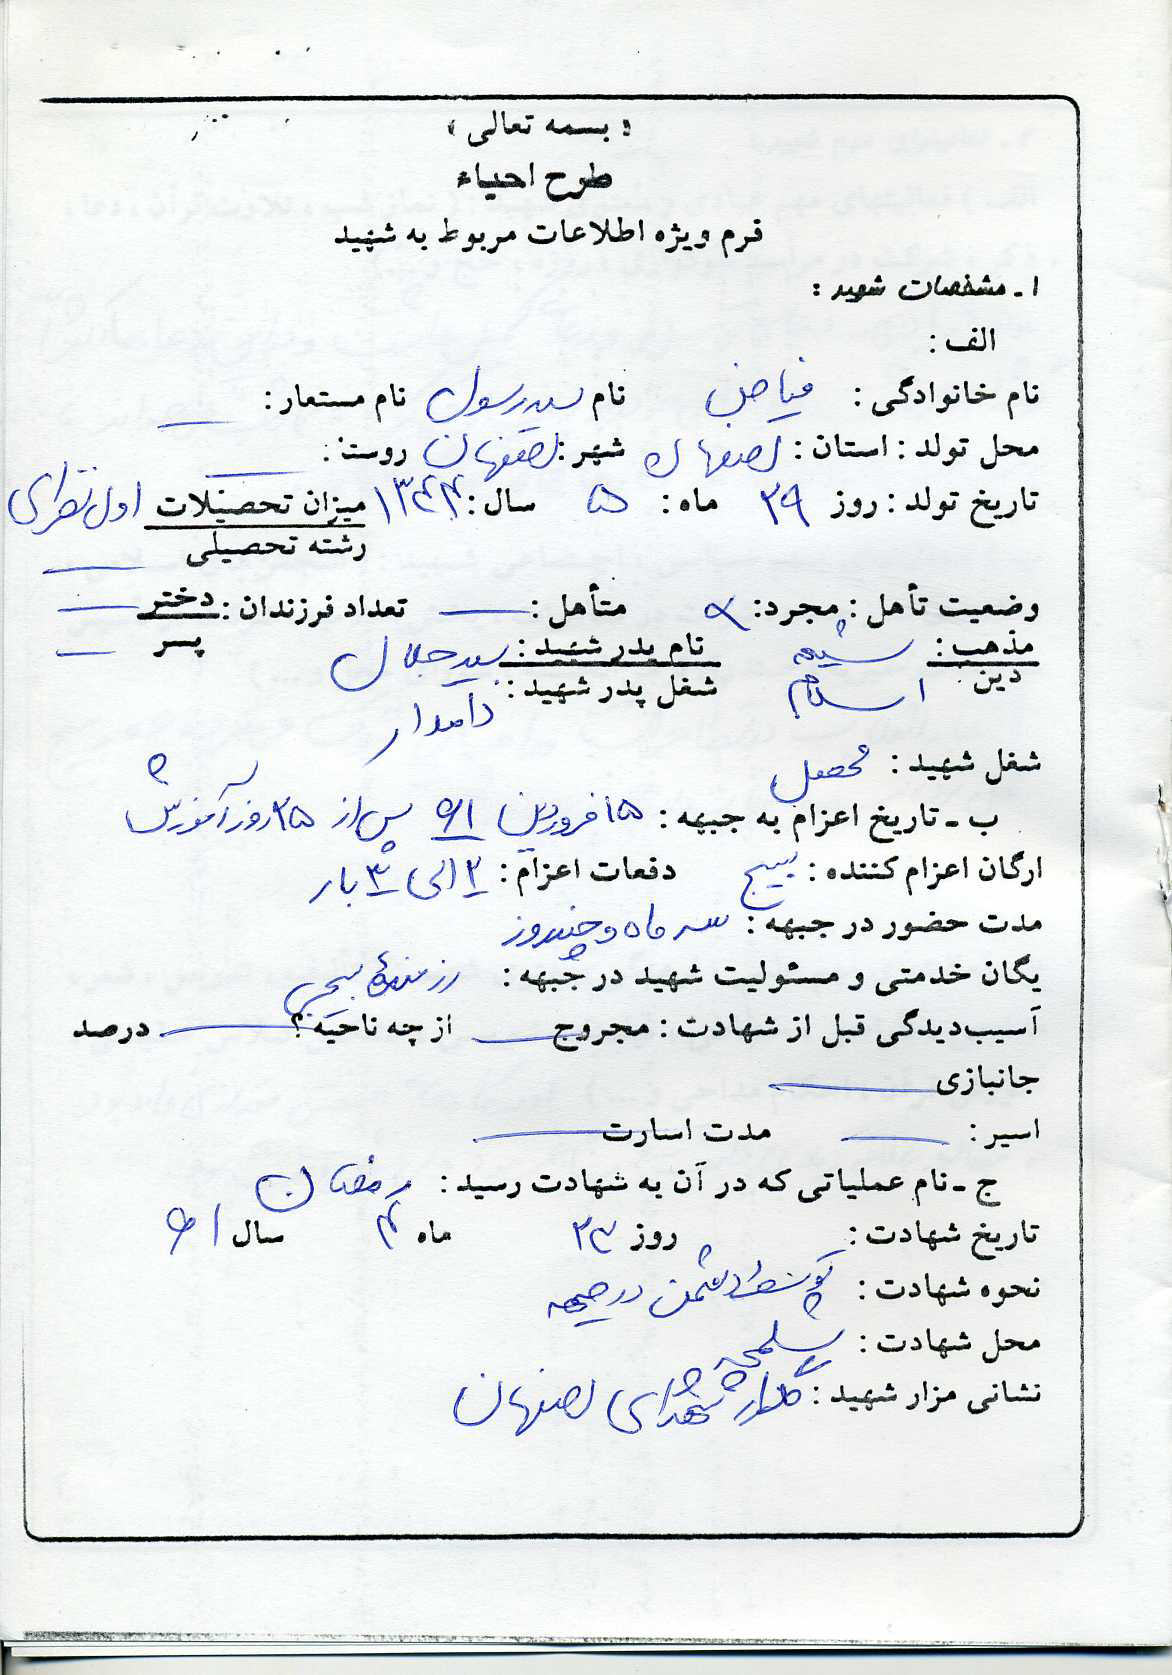 « بسمه تعالی »
طرح احیاء
فرم ویژه اطلاعات مربوط به شهید
۱ ـ مشخصات شهید :
الف :
نام خانوادگی : فیاض نام سید رسول نام مستعار : ــ
محل تولد : استان : اصفهان شهر : اصفهان روستا : ــ
تاریخ تولد : روز ۲۹ ماه : ۵ سال : ۱۳۴۴ میزان تحصیلات اول نظری
رشته تحصیلی ــ
وضعیت تأهل : مجرد : متأهل : ــ تعداد فرزندان : دختر ــ
پسر ــ
مذهب : شیعه نام پدر شهید : سید جلال
دین اسلام شغل پدر شهید : دامدار
شغل شهید : محصل
ب ـ تاریخ اعزام به جبهه : ۱۵ فروردین ۶۱ پس از ۲۵ روز آموزش
ارگان اعزام کننده : بسیج دفعات اعزام : ۲ الی ۳ بار
مدت حضور در جبهه : سه ماه و چند روز
یگان خدمتی و مسئولیت شهید در جبهه : رزمنده بسیجی
آسیب‌دیدگی قبل از شهادت : مجروح ــ از چه ناحیه ؟ ــ درصد
جانبازی ــ
اسیر : ــ مدت اسارت ــ
ج ـ نام عملیاتی که در آن به شهادت رسید : رمضان
تاریخ شهادت : روز ۲۳ ماه ۴ سال ۶۱
نحوه شهادت : توسط دشمن در جبهه
محل شهادت : شلمچه
نشانی مزار شهید : گلزار شهدای اصفهان